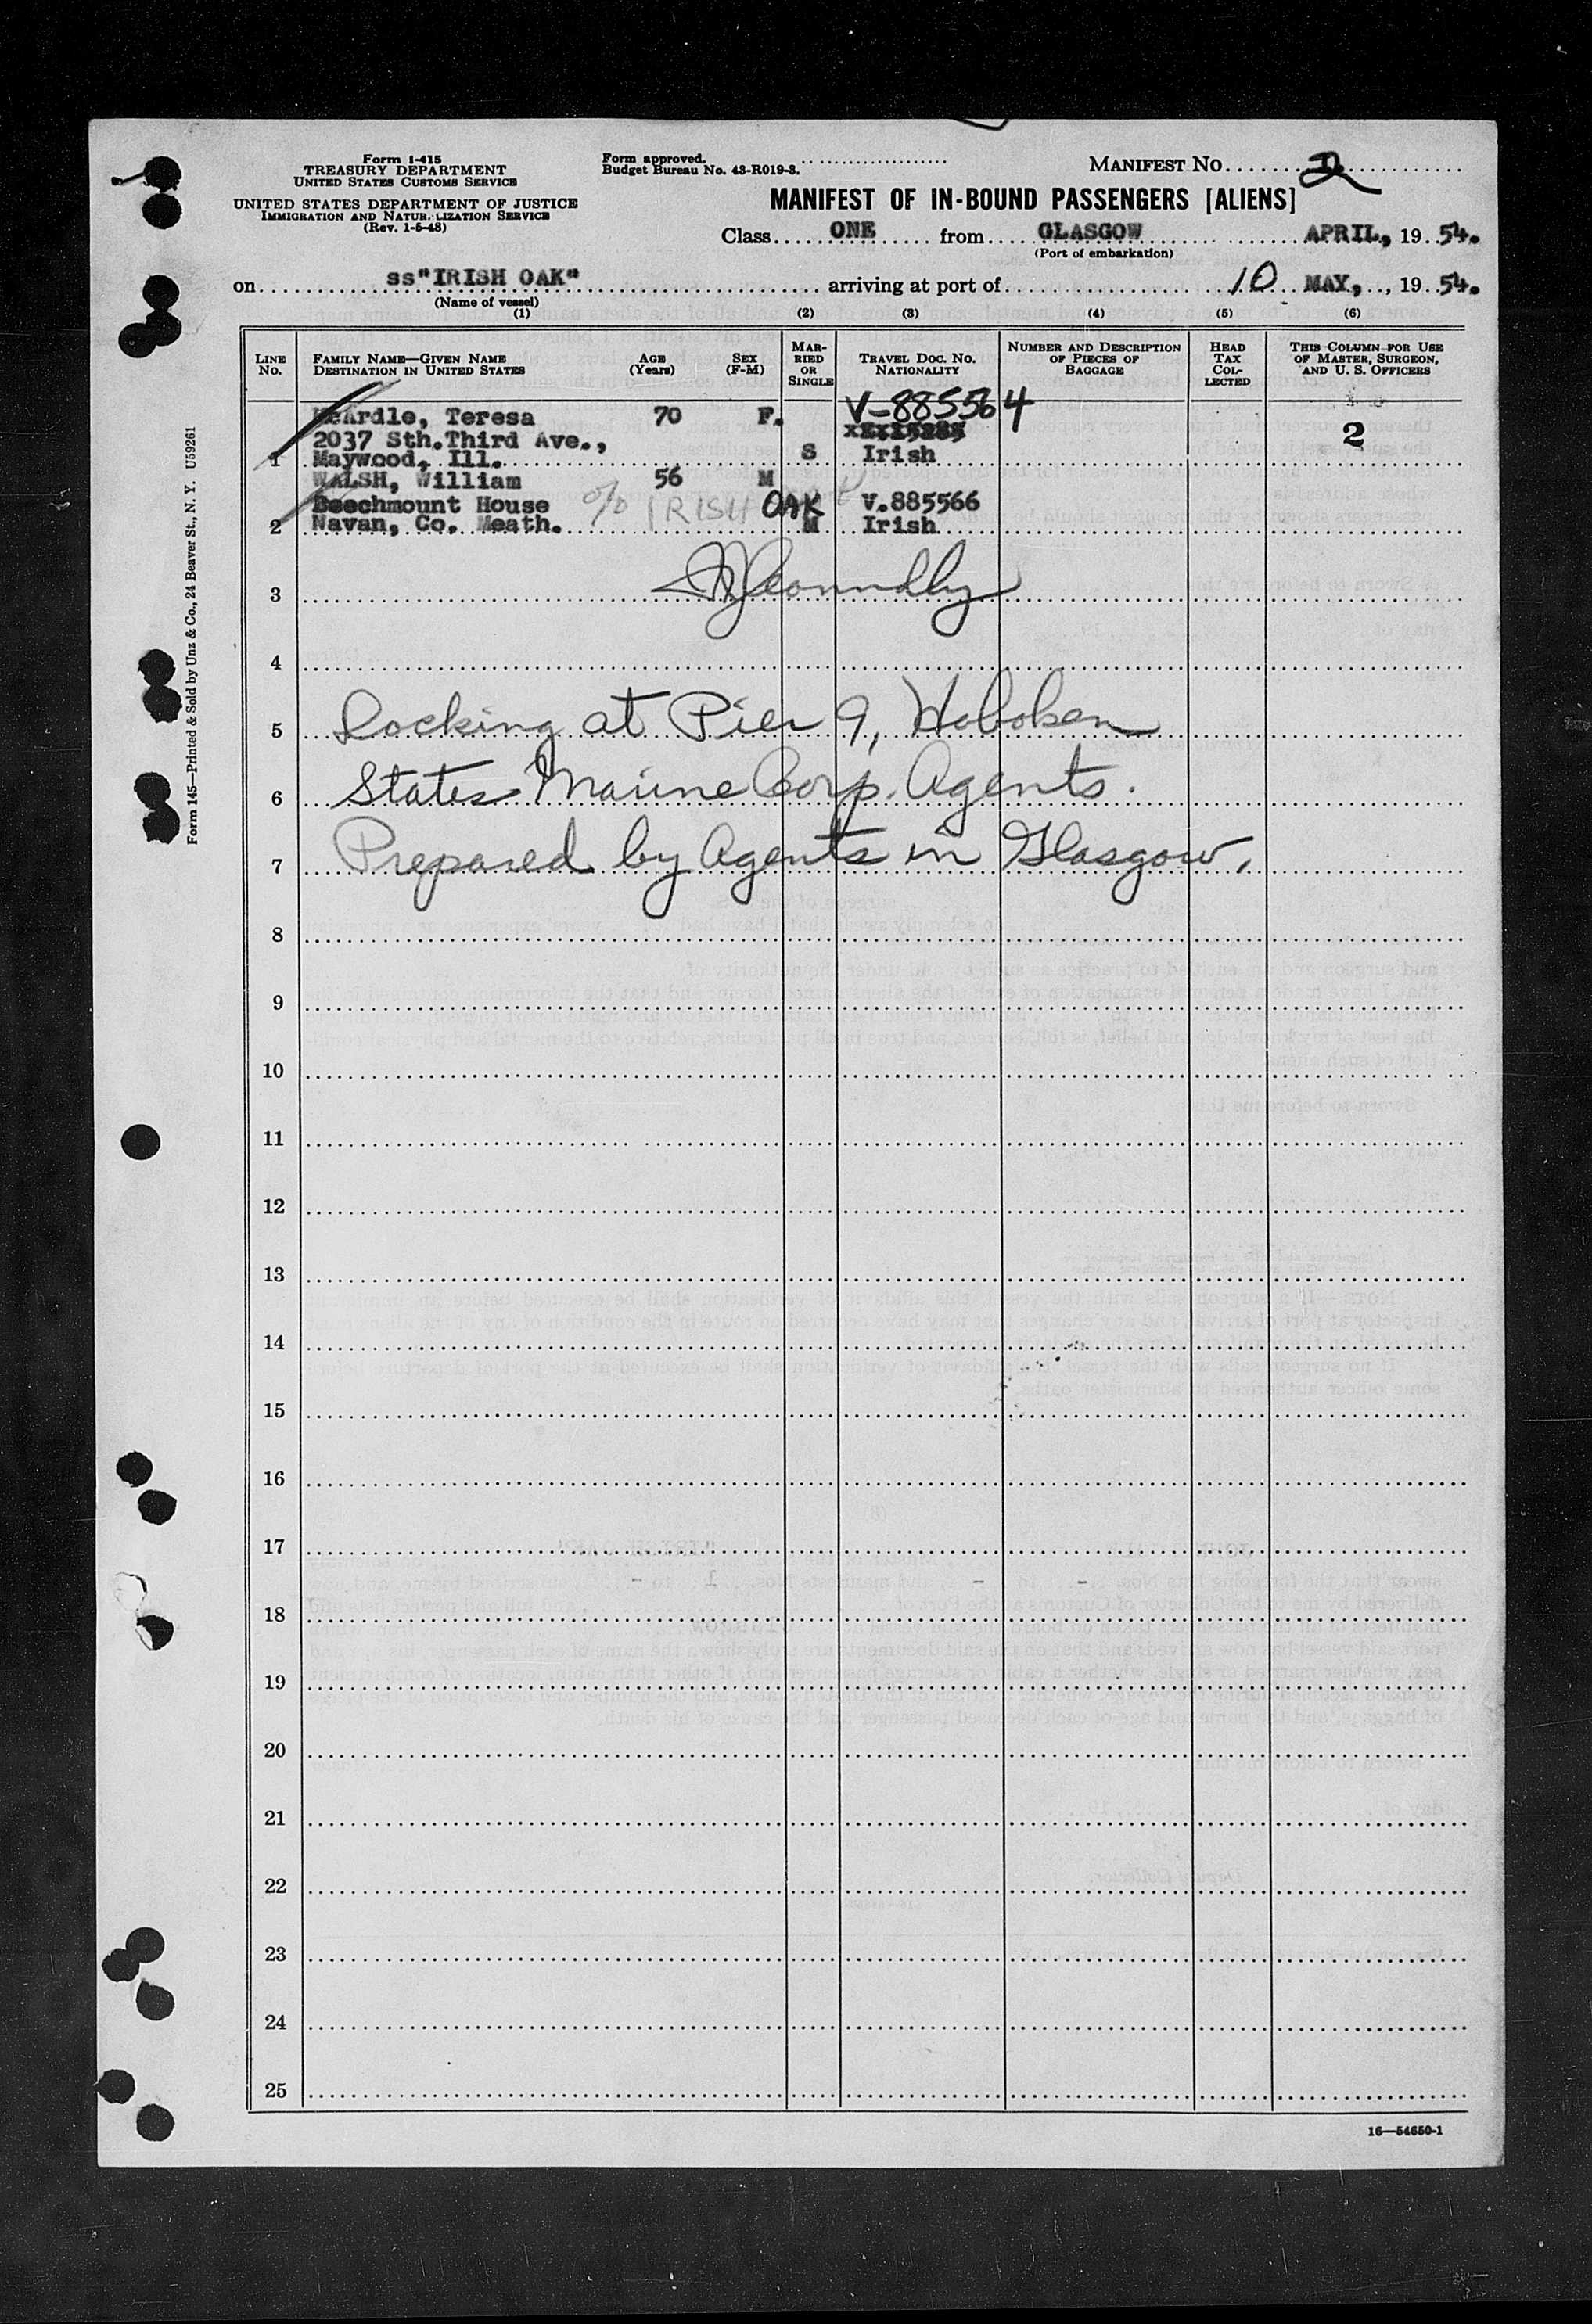 Form I-415
TREASURY DEPARTMENT
UNITED STATES CUSTOMS SERVICE
UNITED STATES DEPARTMENT OF JUSTICE
IMMIGRATION AND NATUR. LIZATION SERVICE
(Rev. 1-5-48)
Form approved.
Budget Bureau No. 43-R019-3.
MANIFEST NO. 2
MANIFEST OF IN-BOUND PASSENGERS [ALIENS]
Class ONE from GLASGOW APRIL, 19 54.
(Port of embarkation)
on ss"IRISH OAK" arriving at port of 10 MAY, , 19 54.
(Name of vessel)
(1) (2) (3) (4) (5) (6)
LINE No. FAMILY NAME—GIVEN NAME DESTINATION IN UNITED STATES AGE (Years) SEX (F-M) MARRIED OR SINGLE TRAVEL DOC. NO. NATIONALITY NUMBER AND DESCRIPTION OF PIECES OF BAGGAGE HEAD TAX COLLECTED THIS COLUMN FOR USE OF MASTER, SURGEON, AND U. S. OFFICERS
McArdle, Teresa 70 F. V-885564
2037 Sth.Third Ave., 2
1 Maywood, Ill. S Irish
WALSH, William 56 M
Beechmount House % IRISH OAK V.885566
2 Navan, Co. Meath. M Irish
3
4
5 Docking at Pier 9, Hoboken
6 States Marine Corp. Agents.
7 Prepared by Agents in Glasgow.
8
9
10
11
12
13
14
15
16
17
18
19
20
21
22
23
24
25
16—54650-1
Form 145—Printed & Sold by Unz & Co., 24 Beaver St., N. Y. U59261